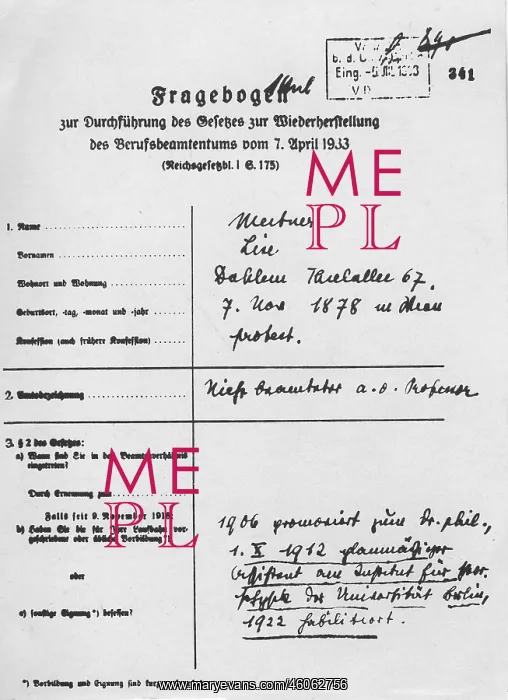 341
Eing.
Fragebogen
zur Durchführung des Gesetzes zur Wiederherstellung
des Berufsbeamtentums vom 7. April 1933
(Reichsgesetzbl. I S. 175)
ME
PL
1. Name
Meitner
Vornamen
Lise
Wohnort und Wohnung
Dahlem Thielallee 67.
Geburtsort, -tag, -monat und -jahr
7. Nov 1878 in Wien
Konfession (auch frühere Konfession)
protest.
2. Amtsbezeichnung
Nicht beamteter a. o. Professor
3. § 2 des Gesetzes:
a) Wann sind Sie in das Beamtenverhältnis
eingetreten?
ME
Durch Ernennung zum
PL
Falls seit 9. November 1918:
b) Haben Sie die für Ihre Laufbahn vor-
geschriebene oder übliche Vorbildung
1906 promoviert zum Dr. phil.,
1. X 1912 planmäßiger
oder
Assistent am Institut für
physik der Universität Berlin,
c) sonstige Eignung*) besessen?
1922 habilitiert.
*) Vorbildung und Eignung sind
www.maryevans.com/46062756